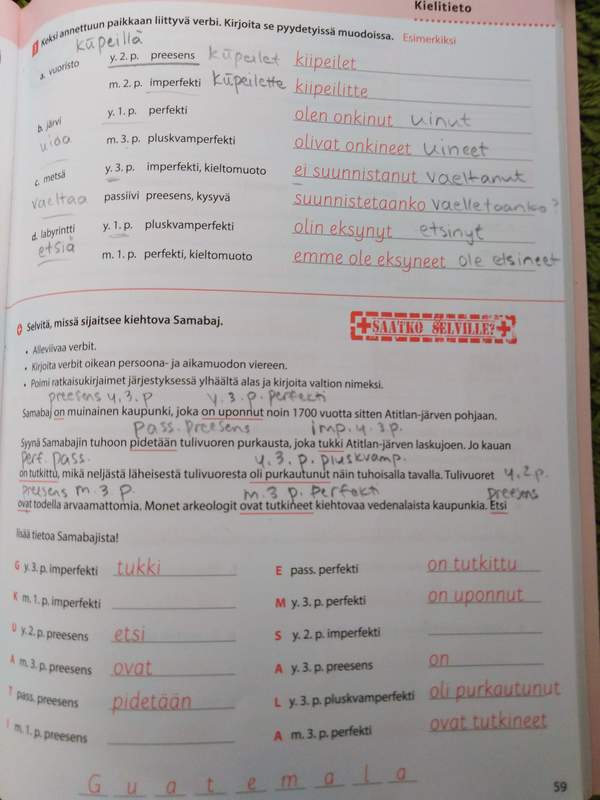 Kielitieto
1 Keksi annettuun paikkaan liittyvä verbi. Kirjoita se pyydetyissä muodoissa. Esimerkiksi
küpeillä
a. vuoristo y. 2. p. preesens küpeilet kiipeilet
m. 2. p. imperfekti küpeilette kiipeilitte
b. järvi y. 1. p. perfekti olen onkinut uinut
uida m. 3. p. pluskvamperfekti olivat onkineet uineet
c. metsä y. 3. p. imperfekti, kieltomuoto ei suunnistanut vaeltanut
vaeltaa passiivi preesens, kysyvä suunnistetaanko vaelletaanko?
d. labyrintti y. 1. p. pluskvamperfekti olin eksynyt etsinyt
etsiä m. 1. p. perfekti, kieltomuoto emme ole eksyneet ole etsineet
Selvitä, missä sijaitsee kiehtova Samabaj.
SAATKO SELVILLE?
• Alleviivaa verbit.
• Kirjoita verbit oikean persoona- ja aikamuodon viereen.
• Poimi ratkaisukirjaimet järjestyksessä ylhäältä alas ja kirjoita valtion nimeksi.
preesens y. 3. p y. 3. p. perfekti
Samabaj on muinainen kaupunki, joka on uponnut noin 1700 vuotta sitten Atitlan-järven pohjaan.
Pass. Preesens imp. y. 3. p.
Syynä Samabajin tuhoon pidetään tulivuoren purkausta, joka tukki Atitlan-järven laskujoen. Jo kauan
Perf. pass. y. 3. p. pluskvamp.
on tutkittu, mikä neljästä läheisestä tulivuoresta oli purkautunut näin tuhoisalla tavalla. Tulivuoret y. 2 p.
preesens m. 3 p. m. 3 p. Perfekti preesens
ovat todella arvaamattomia. Monet arkeologit ovat tutkineet kiehtovaa vedenalaista kaupunkia. Etsi
lisää tietoa Samabajista!
G y. 3. p. imperfekti tukki E pass. perfekti on tutkittu
K m. 1. p. imperfekti M y. 3. p. perfekti on uponnut
U y. 2. p. preesens etsi S y. 2. p. imperfekti
A m. 3. p. preesens ovat A y. 3. p. preesens on
T pass. preesens pidetään L y. 3. p. pluskvamperfekti oli purkautunut
I m. 1. p. preesens A m. 3. p. perfekti ovat tutkineet
G u a t e m a l a
59